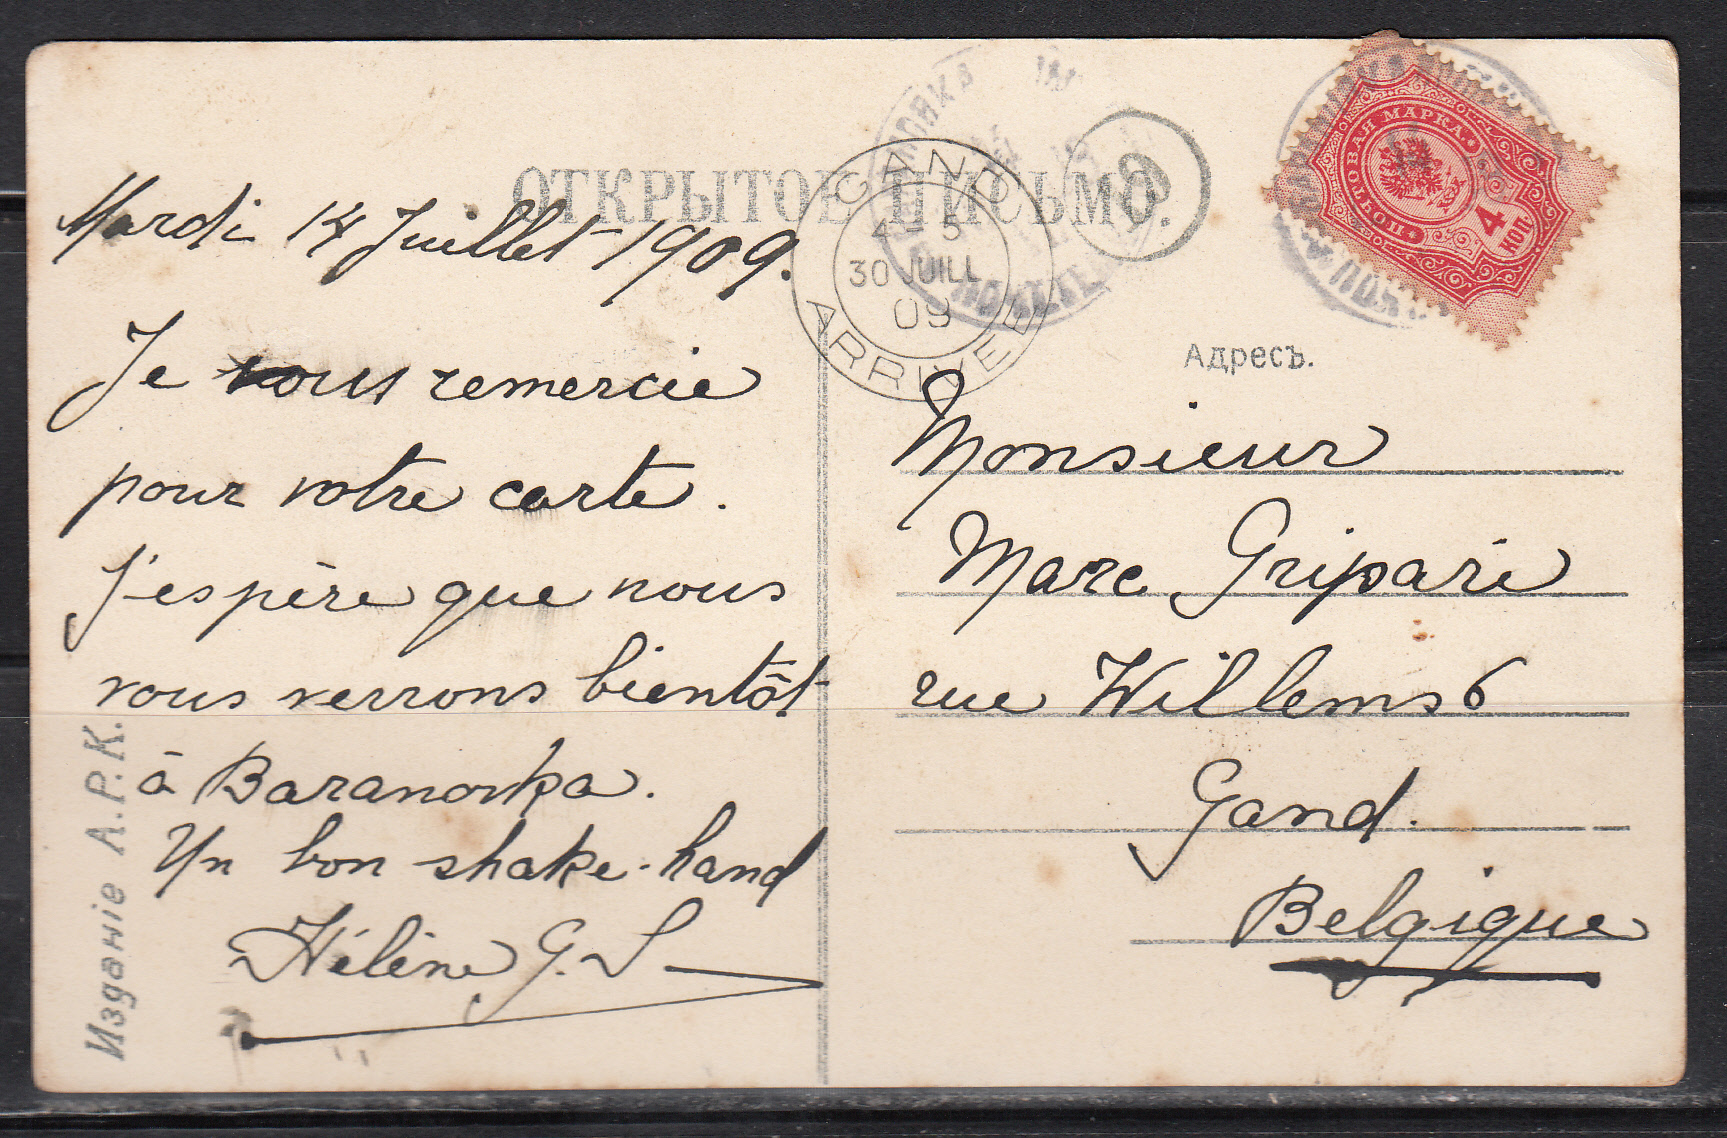 ОТКРЫТОЕ ПИСЬМО.
Mardi 14 Juillet 1909.
Je vous remercie
pour votre carte.
J'espère que nous
vous verrons bientôt
à Baranovka.
Un bon shake-hand
Hélène G. S
Изданіе А.Р.К.
GAND
4-5
30 JUILL
09
ARRIVEE
ПОЧТОВАЯ МАРКА.
4
КОП.
Адресъ.
Monsieur
Marc Gripari
rue Willems 6
Gand.
Belgique